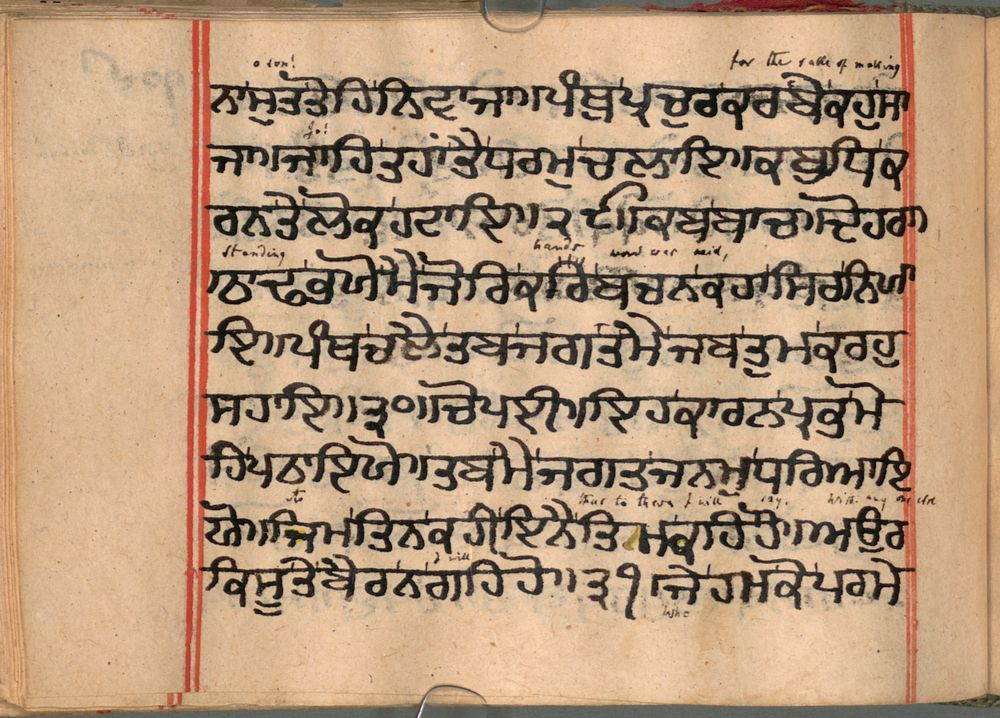 o son! for the sake of making
ਨਾਸੁਤਤੋਹਿਨਿਵਾਜਾ।ਪੰਥੁਪ੍ਰਚੁਰਕਰਬੇਕਹੁਸਾ
go!
ਜਾ।ਜਾਹਿਤਹਾਂਤੈਧਰਮੁਚਲਾਇ।ਕਬੁਧਿਕ
ਰਨਤੇਲੋਕਹਟਾਇ।੨੯।ਕਬਿਬਾਚ।ਦੋਹਰਾ
standing hands word was said,
।ਠਾਢਭਯੋਮੈਜੋਰਿਕਰਿਬਚਨਕਹਾਸਿਰਨਿਯਾ
ਇ।ਪੰਥਚਲੈਤਬਜਗਤਮੇਜਬਤੁਮਕਰਹੁ
ਸਹਾਇ।੩੦।ਚੌਪਈ।ਇਹਕਾਰਨਪ੍ਰਭੁਮੋ
ਹਿਪਠਾਇਯੋ।ਤਬਮੈਜਗਤਜਨਮੁਧਰਿਆਇ
as thus to them I will say. with any one else
ਯੋ।ਜਿਮਤਿਨਕਹੀਇਨੈਤਿਮਕਹਿਹੋ।ਅਉਰ
I will
ਕਿਸੂਤੇਬੈਰਨਗਹਿਹੋ।੩੧।ਜੇਹਮਕੋਪਰਮੇ
who